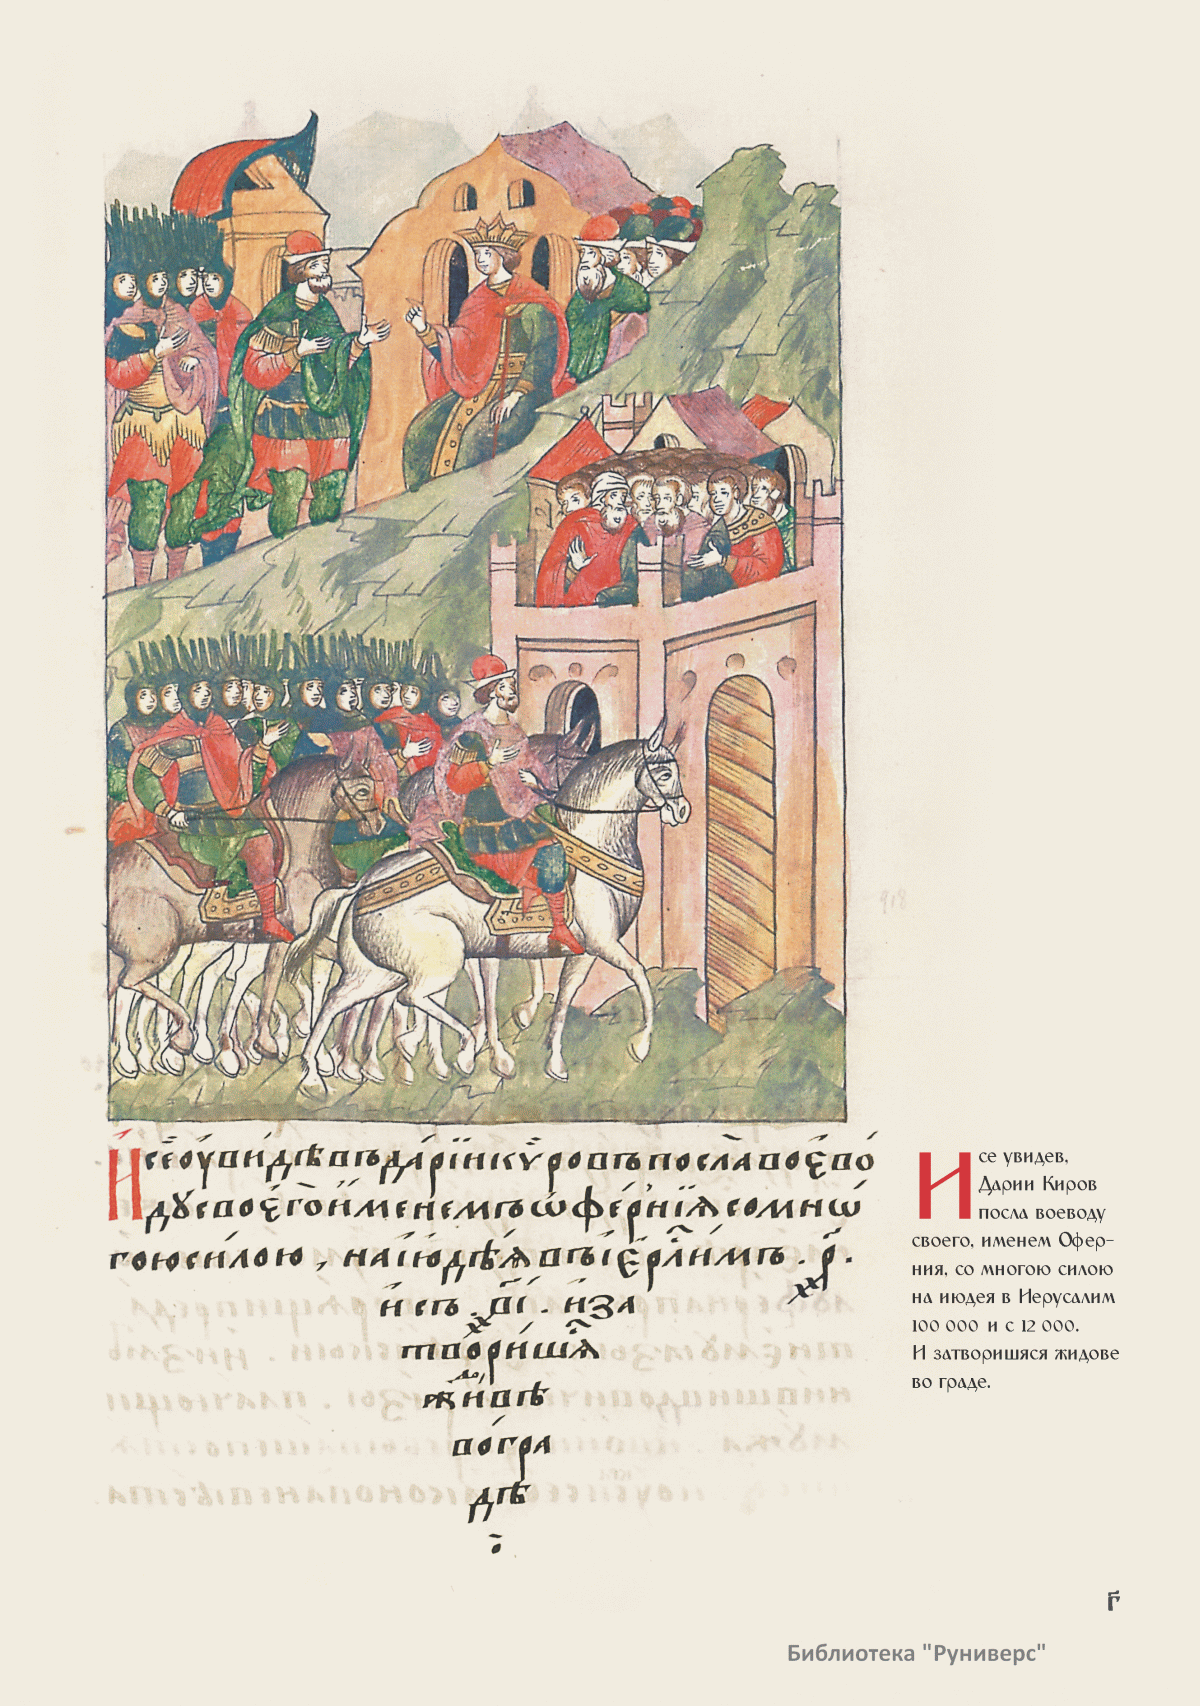 И се ѹвидѣвъ дарїи кѵровъ посла воево
дꙋ своего именемъ ѡфернїѧ со мнѡ
гою силою, на июдѣѧ въ іерлимъ . р҃ .
и съ . в҃і . и за
творишѧ
жидовѣ
во гра
дѣ
И се увидев,
Дарии Киров
посла воеводу
своего, именем Офер-
ния, со многою силою
на июдея в Иерусалим
100 000 и с 12 000.
И затворишяся жидове
во граде.
г҃
Библиотека "Руниверс"